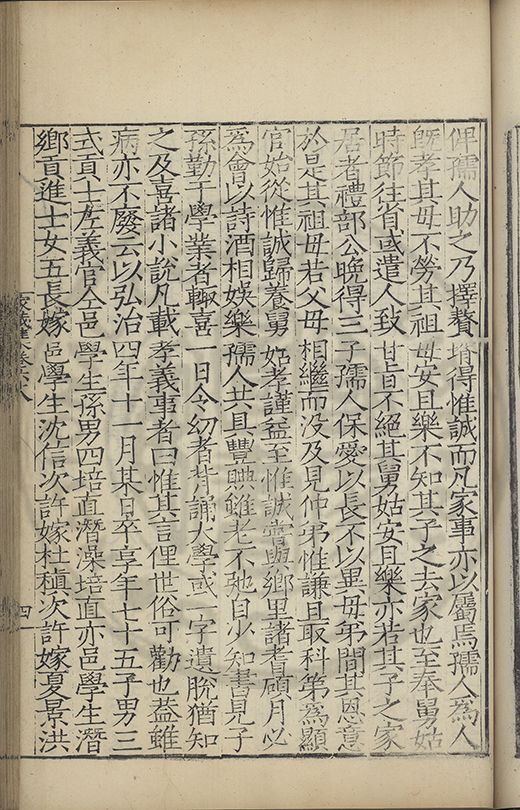 俾孺人助之乃擇贅壻得惟誠而凡家事亦以屬焉孺人為人
既孝其母不勞其祖母安且樂不知其子之去家也至奉舅姑
時節往省或遣人致甘旨不絕其舅姑安且樂亦若其子之家
居者禮部公晩得三子孺人保愛以長不以異母弟間其恩意
於是其祖母若父母相繼而没及見仲弟惟謙且取科第為顯
官始從惟誠歸養舅姑孝謹益至惟誠嘗與鄉里諸耆碩月必
為會以詩酒相娛樂孺人共具豐腆雖老不弛且少知書見子
孫勤于學業者輙喜一日令幼者背誦大學或一字遺脫猶知
之及喜諸小說凡載孝義事者曰惟其言俚世俗可勸也葢雖
病亦不廢云以弘治四年十一月某日卒享年七十五子男三
式貢士左義官仝邑學生孫男四培直潛澡培直亦邑學生潛
鄉貢進士女五長嫁邑學生沈信次許嫁杜稹次許嫁夏景洪
四